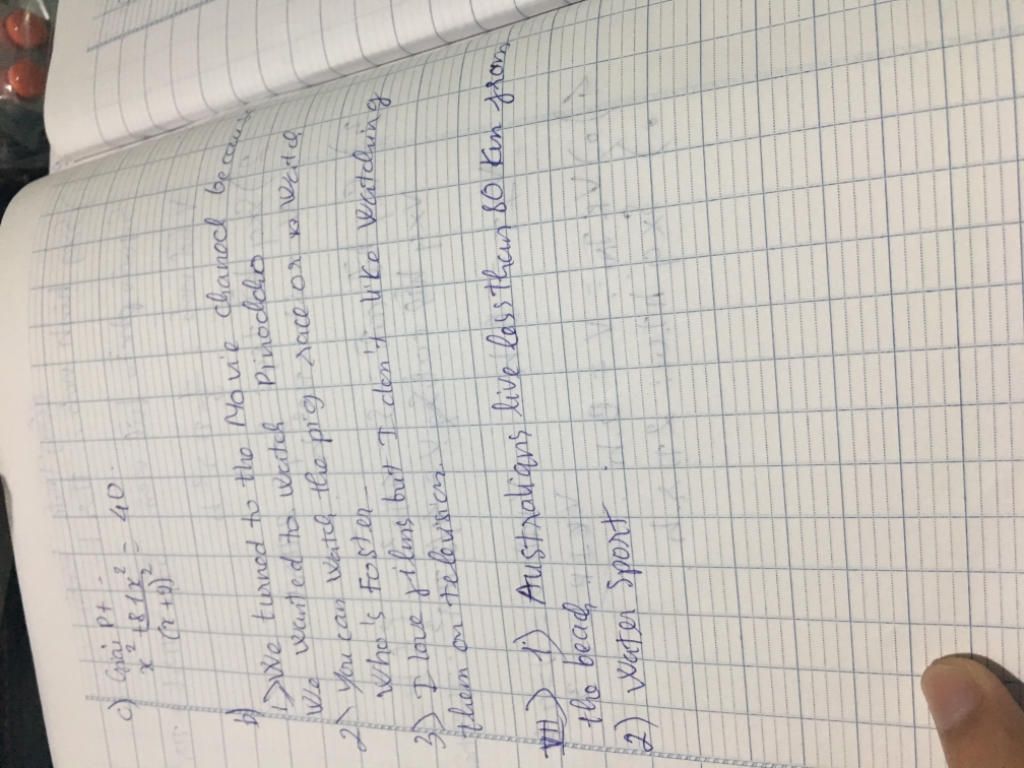 c) Giải pt
x² + 81x² / (x+9)² = 40
b)
1) We turned to the Movie channel because
We wanted to watch Pinocchio
2) You can watch the pig race or watch
Who's Faster
3) I love films but I don't like watching
them on television
VII) 1) Australians live less than 80 km from
the beach
2) water sport